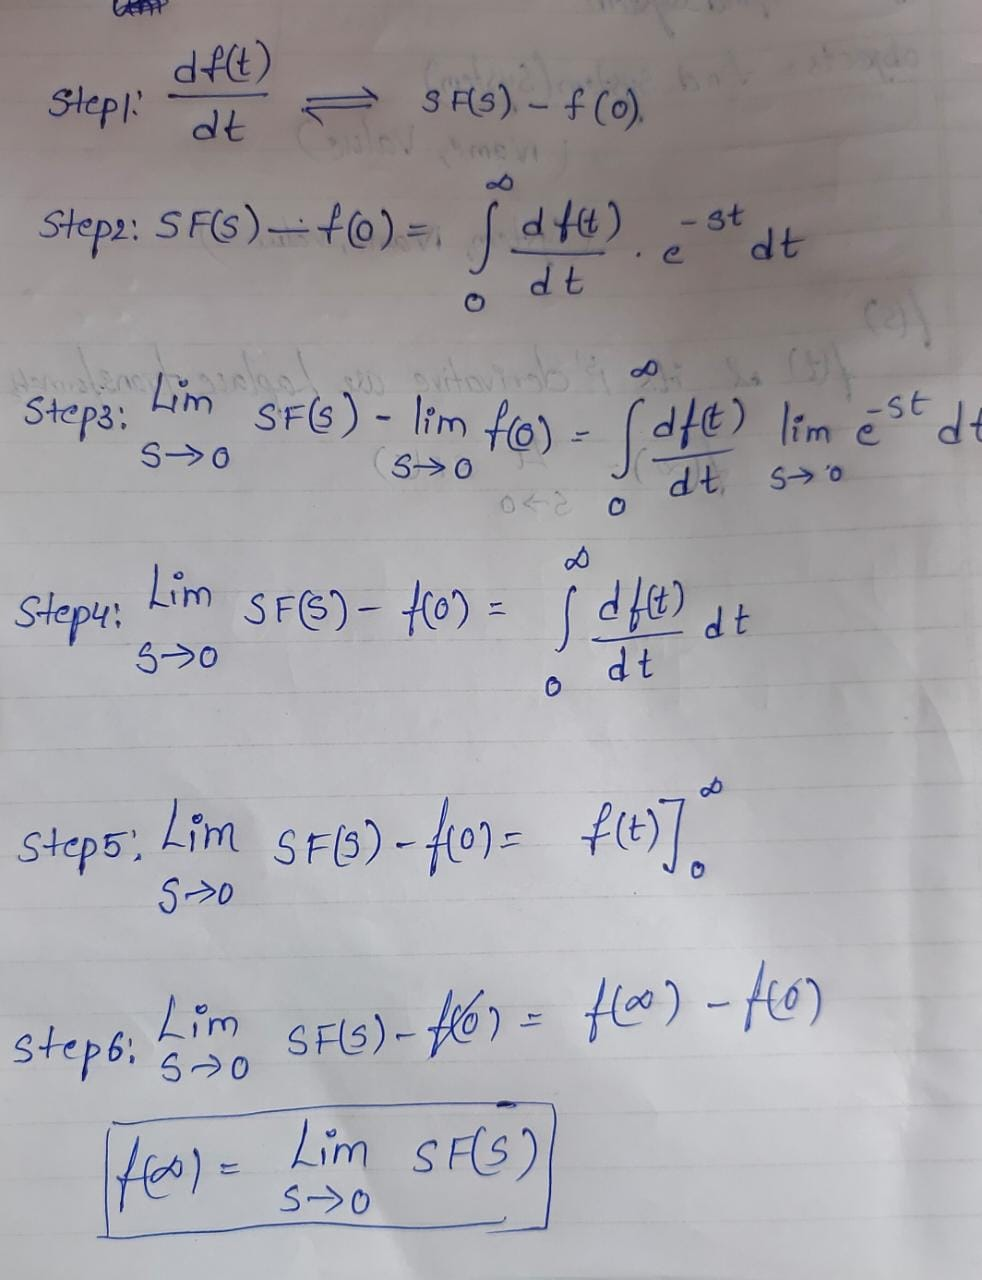 Step1: df(t)/dt ⇌ SF(S) - f(0).
Step2: SF(S) - f(0) = ∫₀^∞ df(t)/dt . e^-st dt
Step3: Lim S→0 SF(S) - lim S→0 f(0) = ∫₀^∞ df(t)/dt lim S→0 e^-st dt
Step4: Lim S→0 SF(S) - f(0) = ∫₀^∞ df(t)/dt dt
Step5: Lim S→0 SF(S) - f(0) = f(t)]₀^∞
Step6: Lim S→0 SF(S) - f(0) = f(∞) - f(0)
f(∞) = Lim S→0 SF(S)